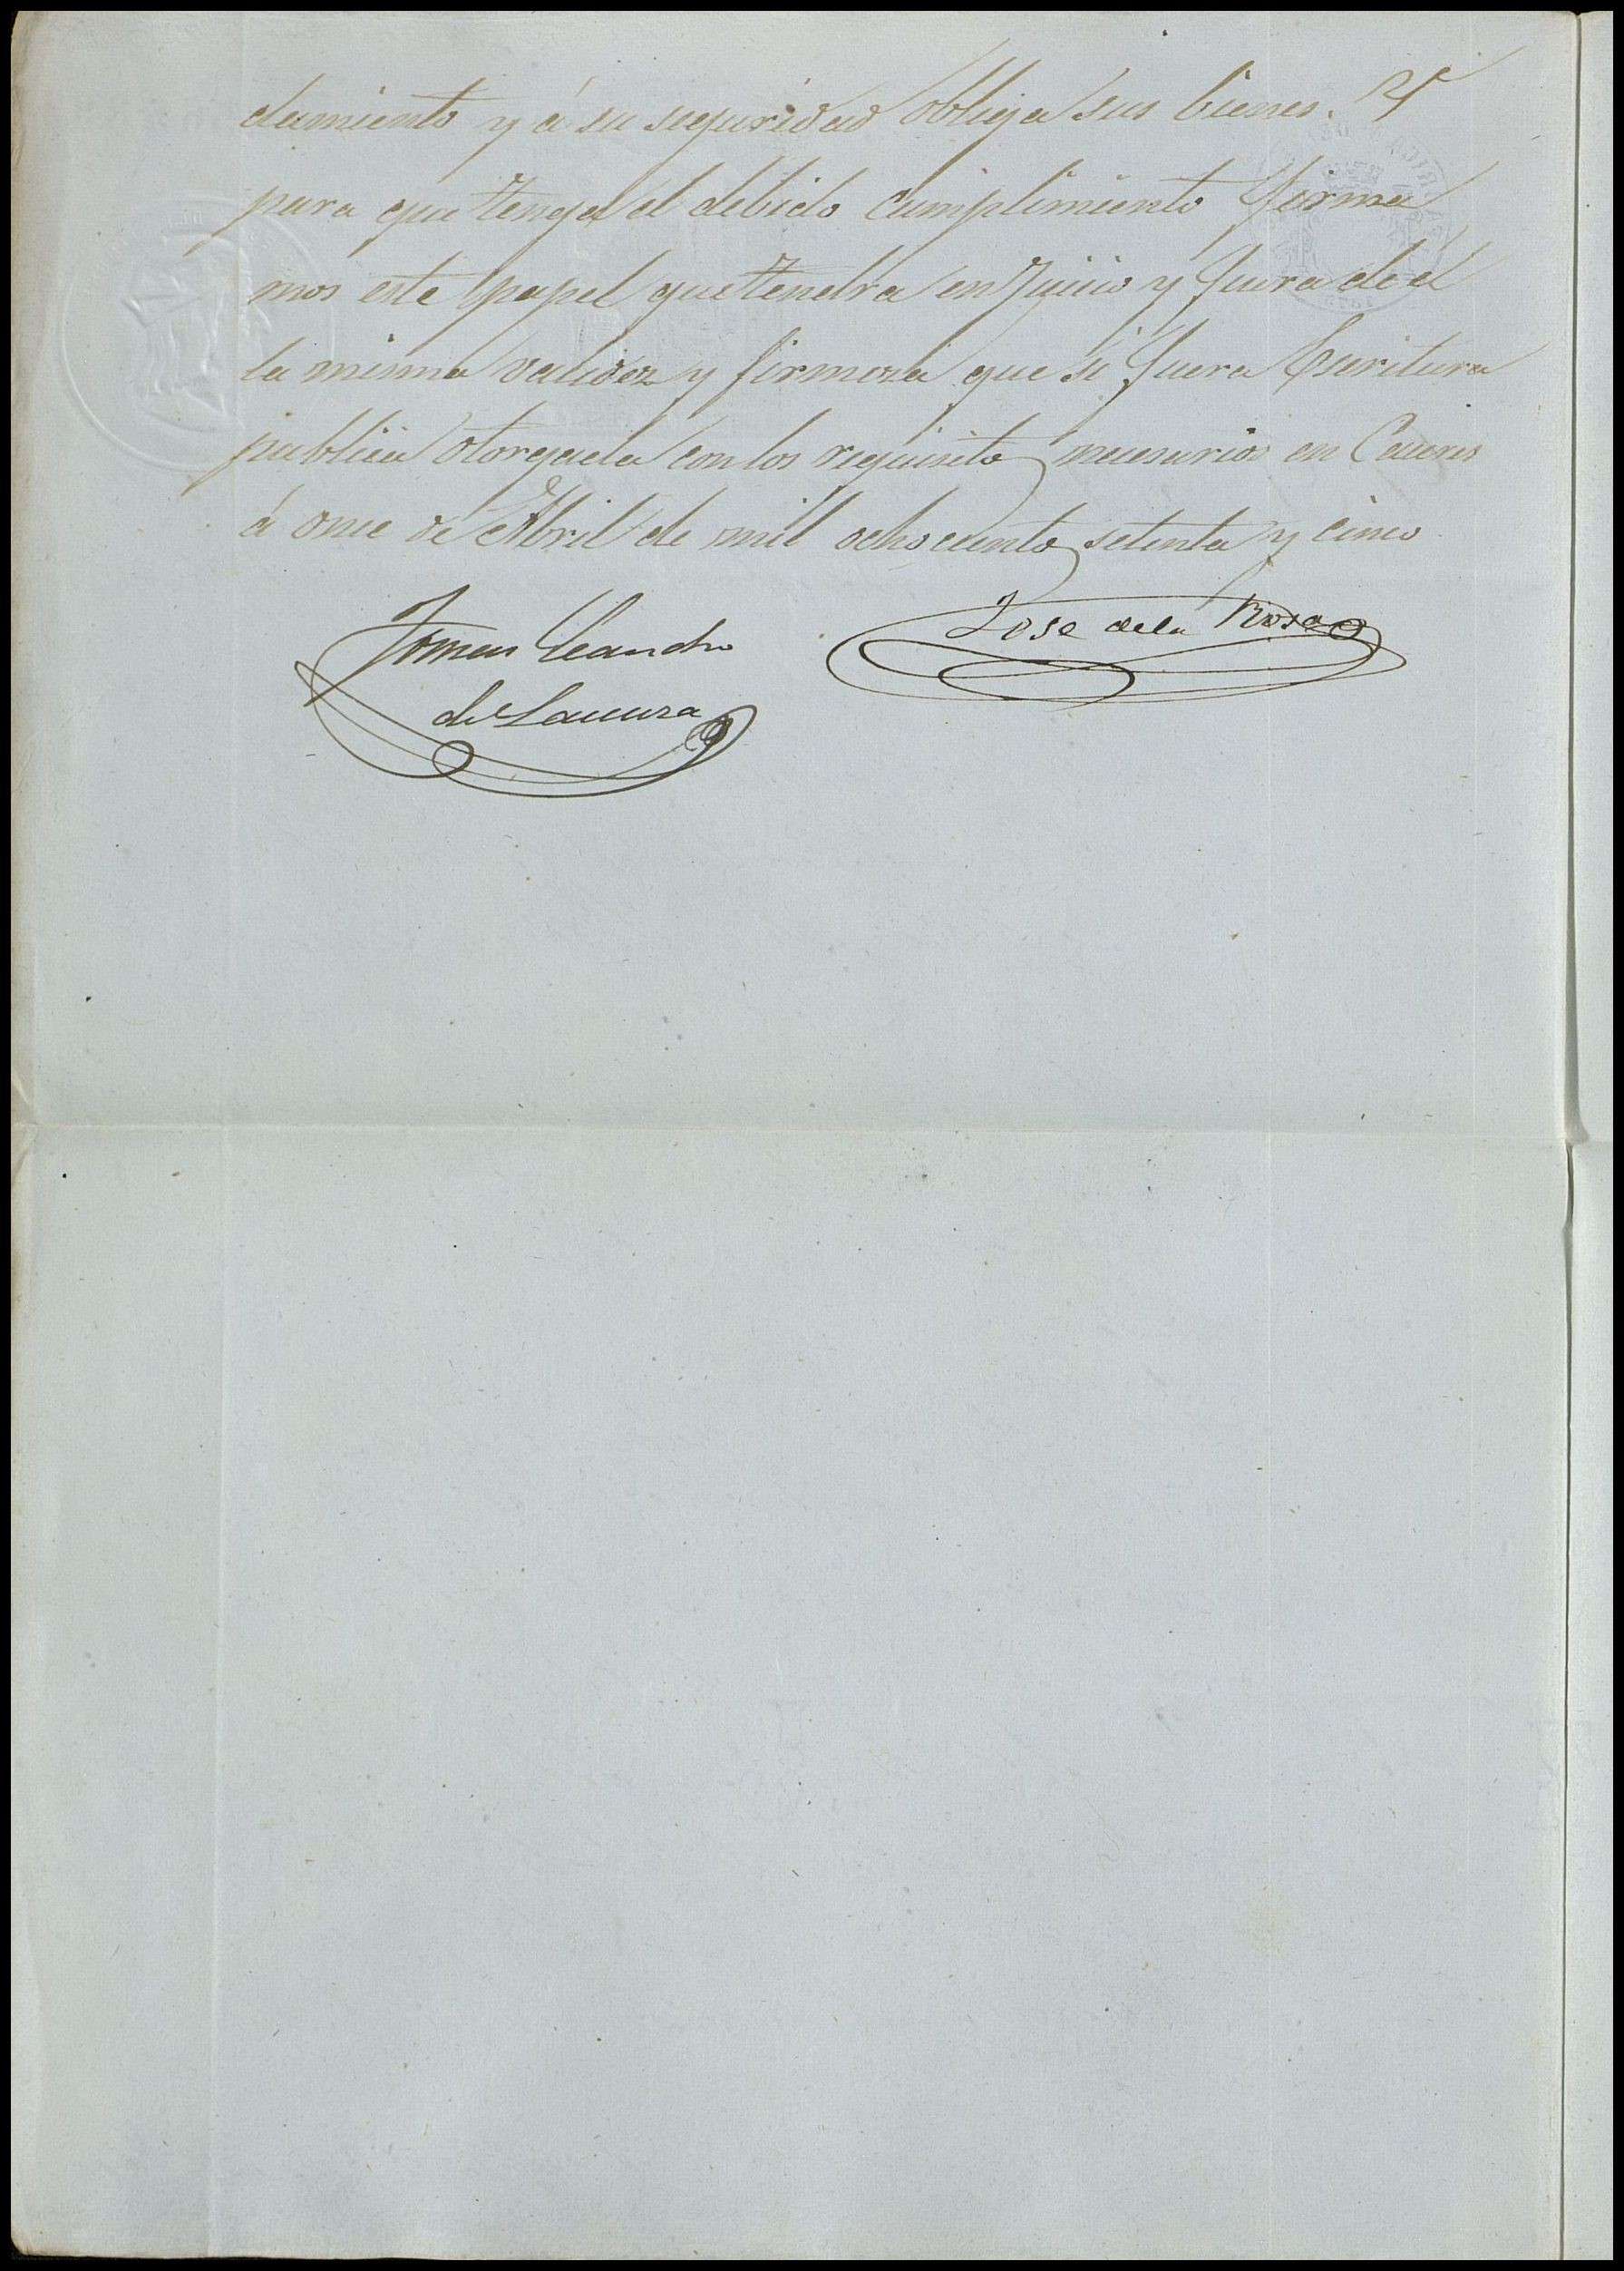 damiento y á su seguridad obliga sus bienes. Y
para que tenga el debido cumplimiento firma
mos este papel que tendra en Juicio y fuera de él
la misma validez y firmeza que si fuera Escritura
publica otorgada con los requisitos necesarios en Caceres
á once de Abril de mil ochocientos setenta y cinco
Tomas Leandro
Jose de la Rosa
de